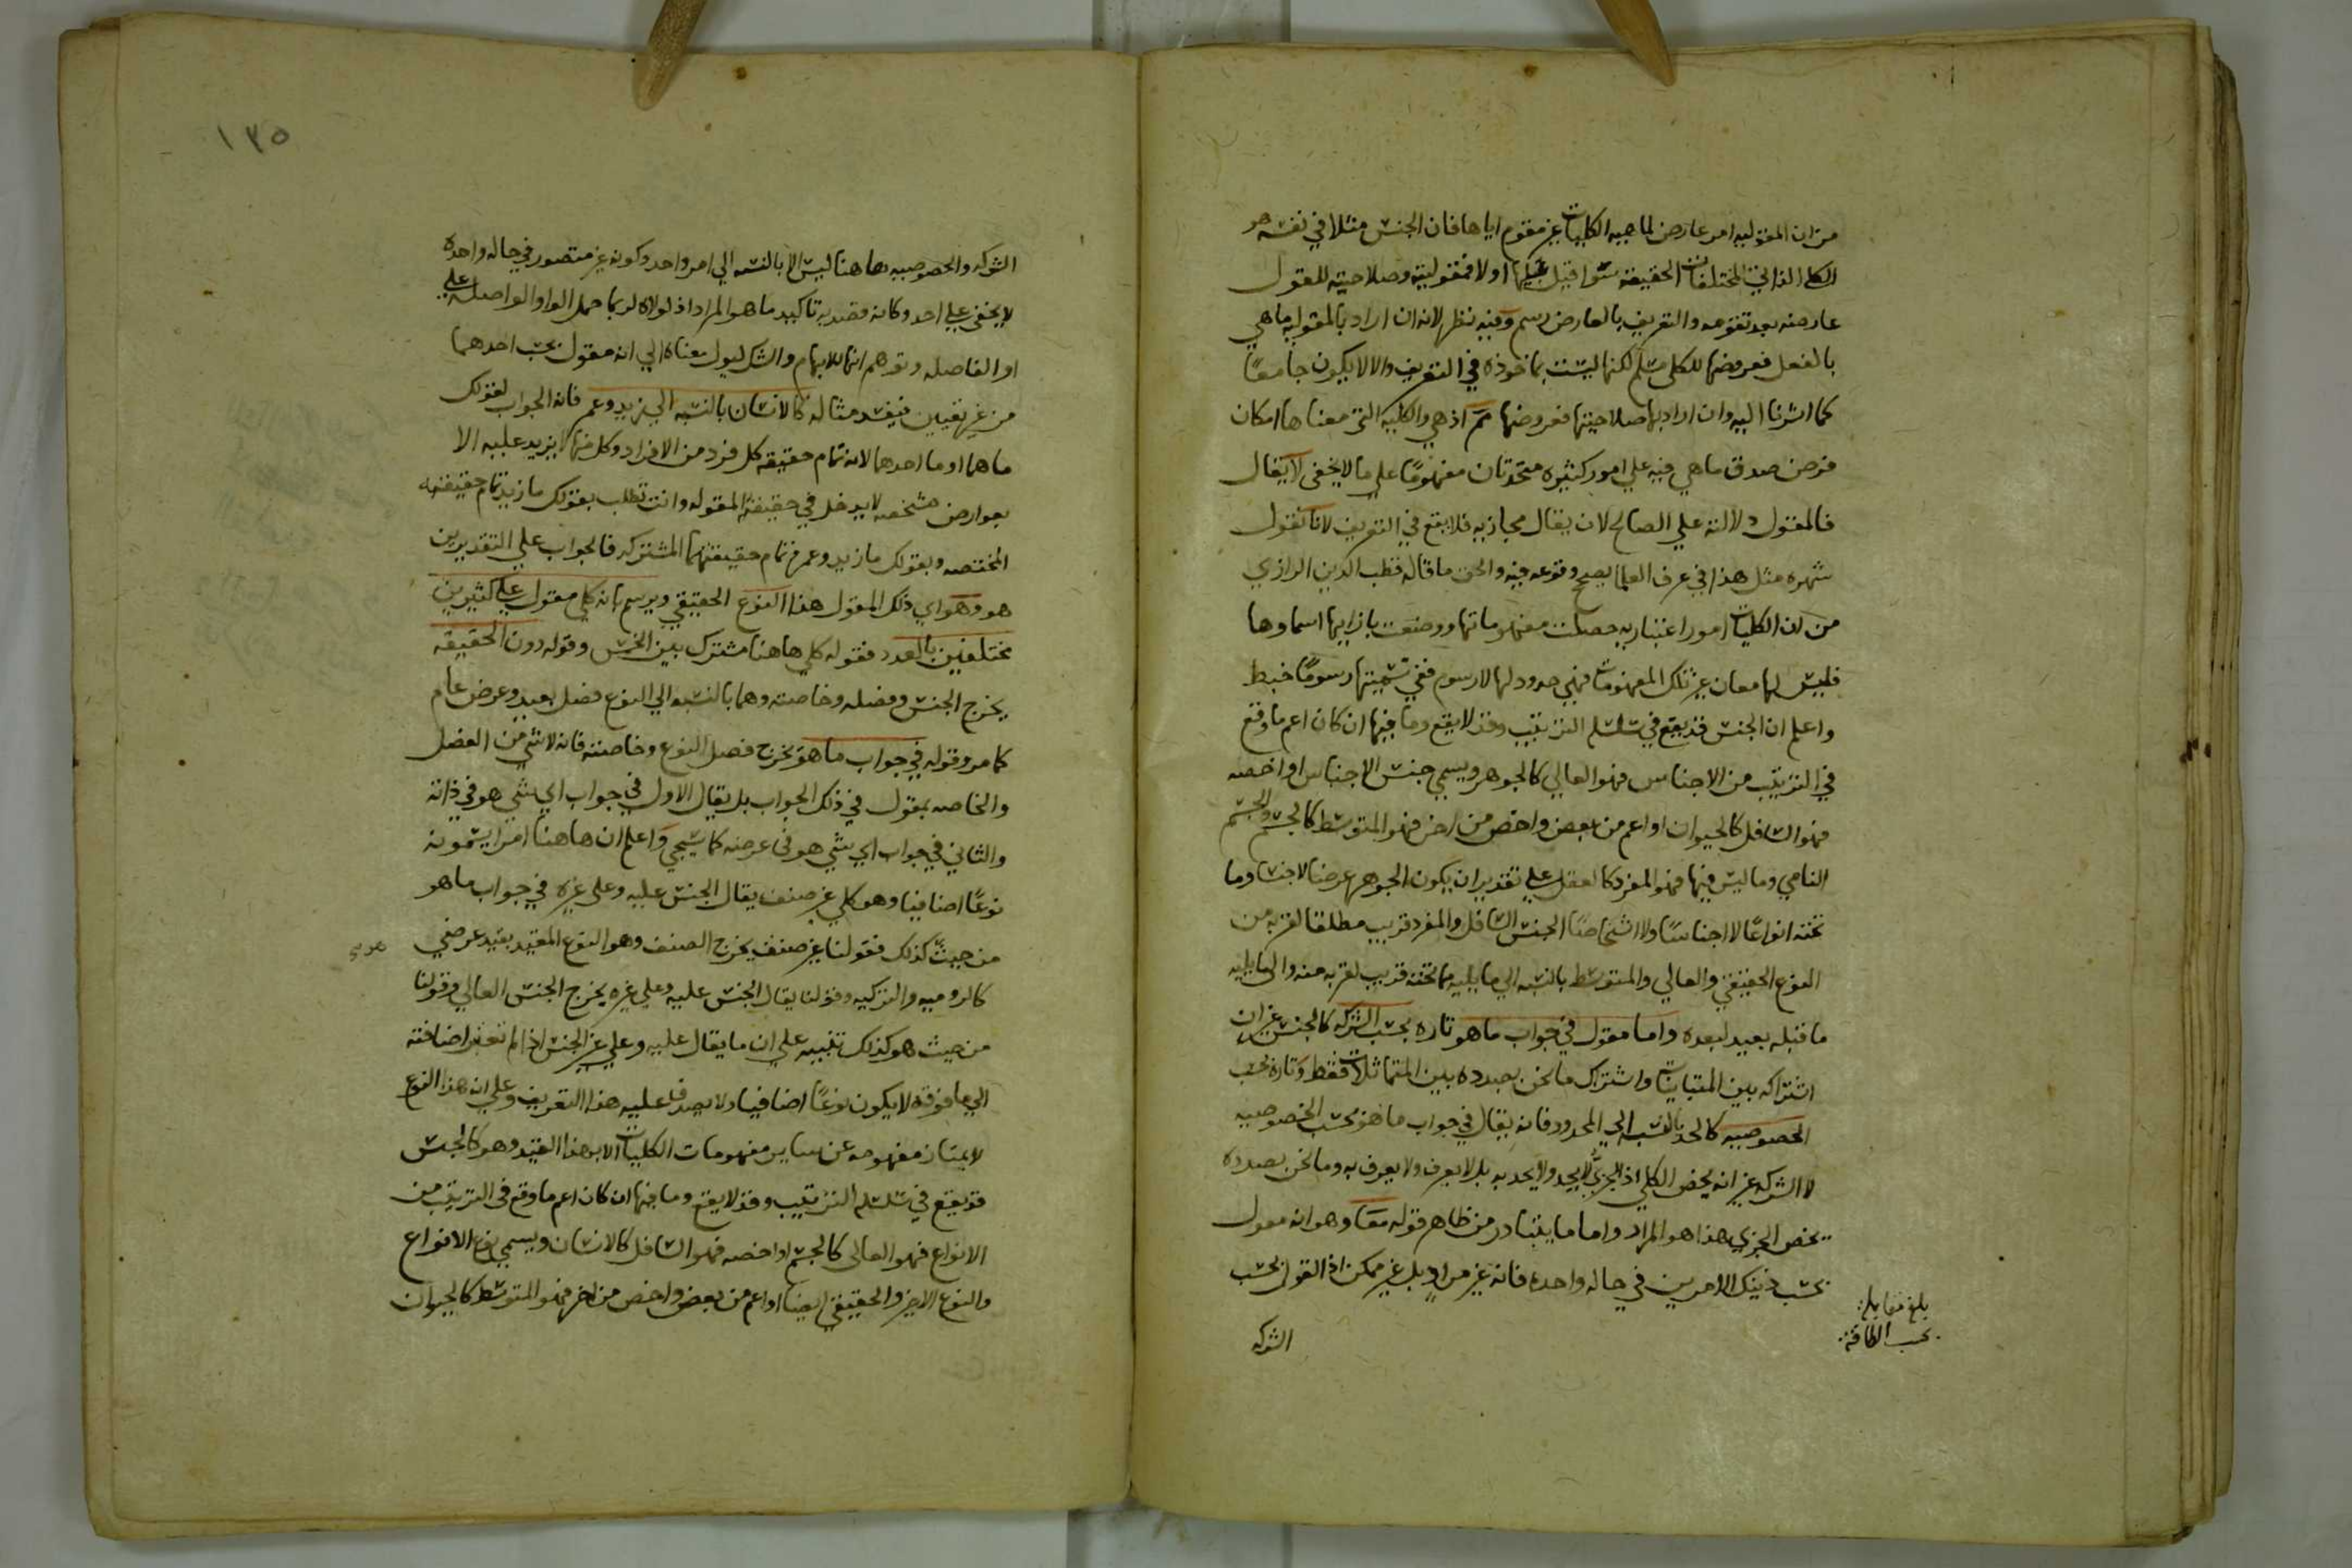 من ان المقوليه امر عارض لماهيه الكليات غير مقوم اياها فان الجنس مثلا في نفسه هو
الكلي الذاتي لمختلفات الحقيقه سوا قيل عليها او لا فمقوليته وصلاحيته للمقول
عارضه بعد تقومه والتعريف بالعارض رسم وفيه نظر لانه ان اراد بالمقوليه ما هي
بالفعل فعروضها للكلي مسلم لكنها ليست بماخوذه في التعريف والا لا يكون جامعًا
كما اشرنا اليه وان اراد بها صلاحيتها فعروضها مم اذ هي والكليه التي معناها امكان
فرض صدق ما هي فيه علي امور كثيره متحدتان مفهومًا علي ما لا يخفي لا يقال
فالمقول دلالته علي الصالح لان يقال مجازيه فلا يقع في التعريف لانا نقول
شهره مثل هذا في عرف العلما يصحح وقوعه فيه والحق ما قاله قطب الدين الرازي
من ان الكليات امور اعتباريه حصلت مفهوماتها ووضعت بازايها اسماوها
فليس لها معان غير تلك المفهومات فهي حدود لها لا رسوم ففي تسميتها رسومًا خبط
واعلم ان الجنس قد يقع في سلسله الترتيب وقد لا يقع وما فيها ان كان اعم ما وقع
في الترتيب من الاجناس فهو العالي كالجوهر ويسمي جنس الاجناس او اخصه
فهو السافل كالحيوان او اعم من بعض واخص من اخر فهو المتوسط كالجسم والجسم
النامي وما ليس فيها فهو المفرد كالعقل علي تقدير ان يكون الجوهر عرضا لا جنسا وما
تحته انواعًا لا اجناسًا ولا اشخاصًا الجنس السافل والمفرد قريب مطلقا لقربه من
النوع الحقيقي والعالي والمتوسط بالنسبه الي ما يليه مما تحته قريب لقربه منه والي ما يليه
ما قبله بعيد لبعده واما مقول في جواب ما هو تاره بحسب الشركه كالجنس غير ان
اشتراكه بين المتباينات واشتراك ما نحن بصدده بين المتماثلات فقط وتاره بحسب
الخصوصيه كالحد بالنسبه الي المحدود فانه يقال في جواب ما هو بحسب الخصوصيه
لا الشركه غير انه يخص الكلي اذ الجزيّ لا يحد ولا يحد به بل لا يعرف ولا يعرف به وما نحن بصدده
يخص الجزي هذا هو المراد واما ما يتبادر من ظاهر قوله معًا وهو انه مقول
بحسب ذينك الامرين في حاله واحده فانه غير مرادٍ بل غير ممكن اذ القول بحسب
الشركه
بلغ مقابلة
بحسب الطاقة
١٣٥
الشركه والخصوصيه هاهنا ليس الا بالنسبه الي امر واحد وكونه غير متصور في حاله واحده
لا يخفي علي احد وكانه قصد به تاكيد ما هو المراد اذ لولاه لربما حمل الواو الواصله علي
او الفاصله وتوهم انها للابهام والشك ليول معناه الي انه مقول بحسب احدهما
من غير تعيين فيفسد مثاله كالانسان بالنسبه الي زيد وعمرو فانه الجواب لقولك
ما هما او ما احدهما لانه تمام حقيقه كل فرد من الافراد وكل منها لا يزيد عليه الا
بعوارض مشخصه لا يدخل في حقيقة المقوله وانت تطلب بقولك ما زيد تمام حقيقته
المختصه وبقولك ما زيد وعمرو تمام حقيقتهما المشتركه فالجواب علي التقديرين
هو وهو اي ذلك المقول هذا النوع الحقيقي ويرسم بانه كلي مقول علي كثيرين
مختلفين بالعدد فقوله كلي هاهنا مشترك بين الخمس وقوله دون الحقيقه
يخرج الجنس وفصله وخاصته وهما بالنسبه الي النوع فصل بعيد وعرض عام
كما مر وقوله في جواب ما هو يخرج فصل النوع وخاصته فانه لا شي من الفصل
والخاصه بمقول في ذلك الجواب بل يقال الاول في جواب اي شي هو في ذاته
والثاني في جواب اي شي هو في عرضه كما سيجي واعلم ان هاهنا امرا يسمونه
نوعًا اضافيا وهو كلي غير صنف يقال الجنس عليه وعلي غيره في جواب ما هو
من حيث كذلك فقولنا غير صنف يخرج الصنف وهو النوع المقيد بقيد عرضي
كالروميه والتركيه وقولنا يقال الجنس عليه وعلي غيره يخرج الجنس العالي وقولنا
من حيث هو كذلك تنبيه علي ان ما يقال عليه وعلي غيره الجنس اذا لم تعتبر اضافته
الي ما فوقه لا يكون نوعًا اضافيا ولا يصدق عليه هذا التعريف وعلي ان هذا النوع
لا يمتاز مفهومه عن ساير مفهومات الكليات الا بهذا القيد وهو كالجنس
قد يقع في سلسله الترتيب وقد لا يقع وما فيها ان كان اعم ما وقع في الترتيب من
الانواع فهو العالي كالجسم او اخصه فهو السافل كالانسان ويسمي نوع الانواع
والنوع الاخير والحقيقي ايضا او اعم من بعض واخص من اخر فهو المتوسط كالحيوان